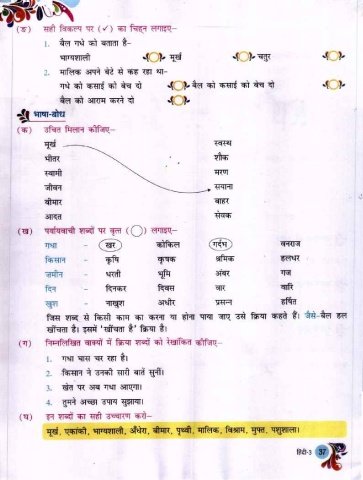 (ङ) सही विकल्प पर (✓) का चिह्न लगाइए–
1. बैल गधे को बताता है–
भाग्यशाली मूर्ख चतुर
2. मालिक अपने बेटे से कह रहा था–
गधे को कसाई को बेच दो बैल को कसाई को बेच दो
बैल को आराम करने दो
भाषा-बोध
(क) उचित मिलान कीजिए–
मूर्ख स्वस्थ
भीतर शौक
स्वामी मरण
जीवन सयाना
बीमार बाहर
आदत सेवक
(ख) पर्यायवाची शब्दों पर वृत्त ( ) लगाइए–
गधा - खर कोकिल गर्दभ वनराज
किसान - कृषि कृषक श्रमिक हलधर
जमीन - धरती भूमि अंबर गज
दिन - दिनकर दिवस वार वारि
खुश - नाखुश अधीर प्रसन्न हर्षित
जिस शब्द से किसी काम का करना या होना पाया जाए उसे क्रिया कहते हैं। जैसे-बैल हल
खींचता है। इसमें 'खींचता है' क्रिया है।
(ग) निम्नलिखित वाक्यों में क्रिया शब्दों को रेखांकित कीजिए–
1. गधा घास चर रहा है।
2. किसान ने उनकी सारी बातें सुनीं।
3. खेत पर अब गधा आएगा।
4. तुमने अच्छा उपाय सुझाया।
(घ) इन शब्दों का सही उच्चारण करो–
मूर्ख, एकांकी, भाग्यशाली, अँधेरा, बीमार, पृथ्वी, मालिक, विश्राम, मुफ्त, पशुशाला।
हिंदी-3 37